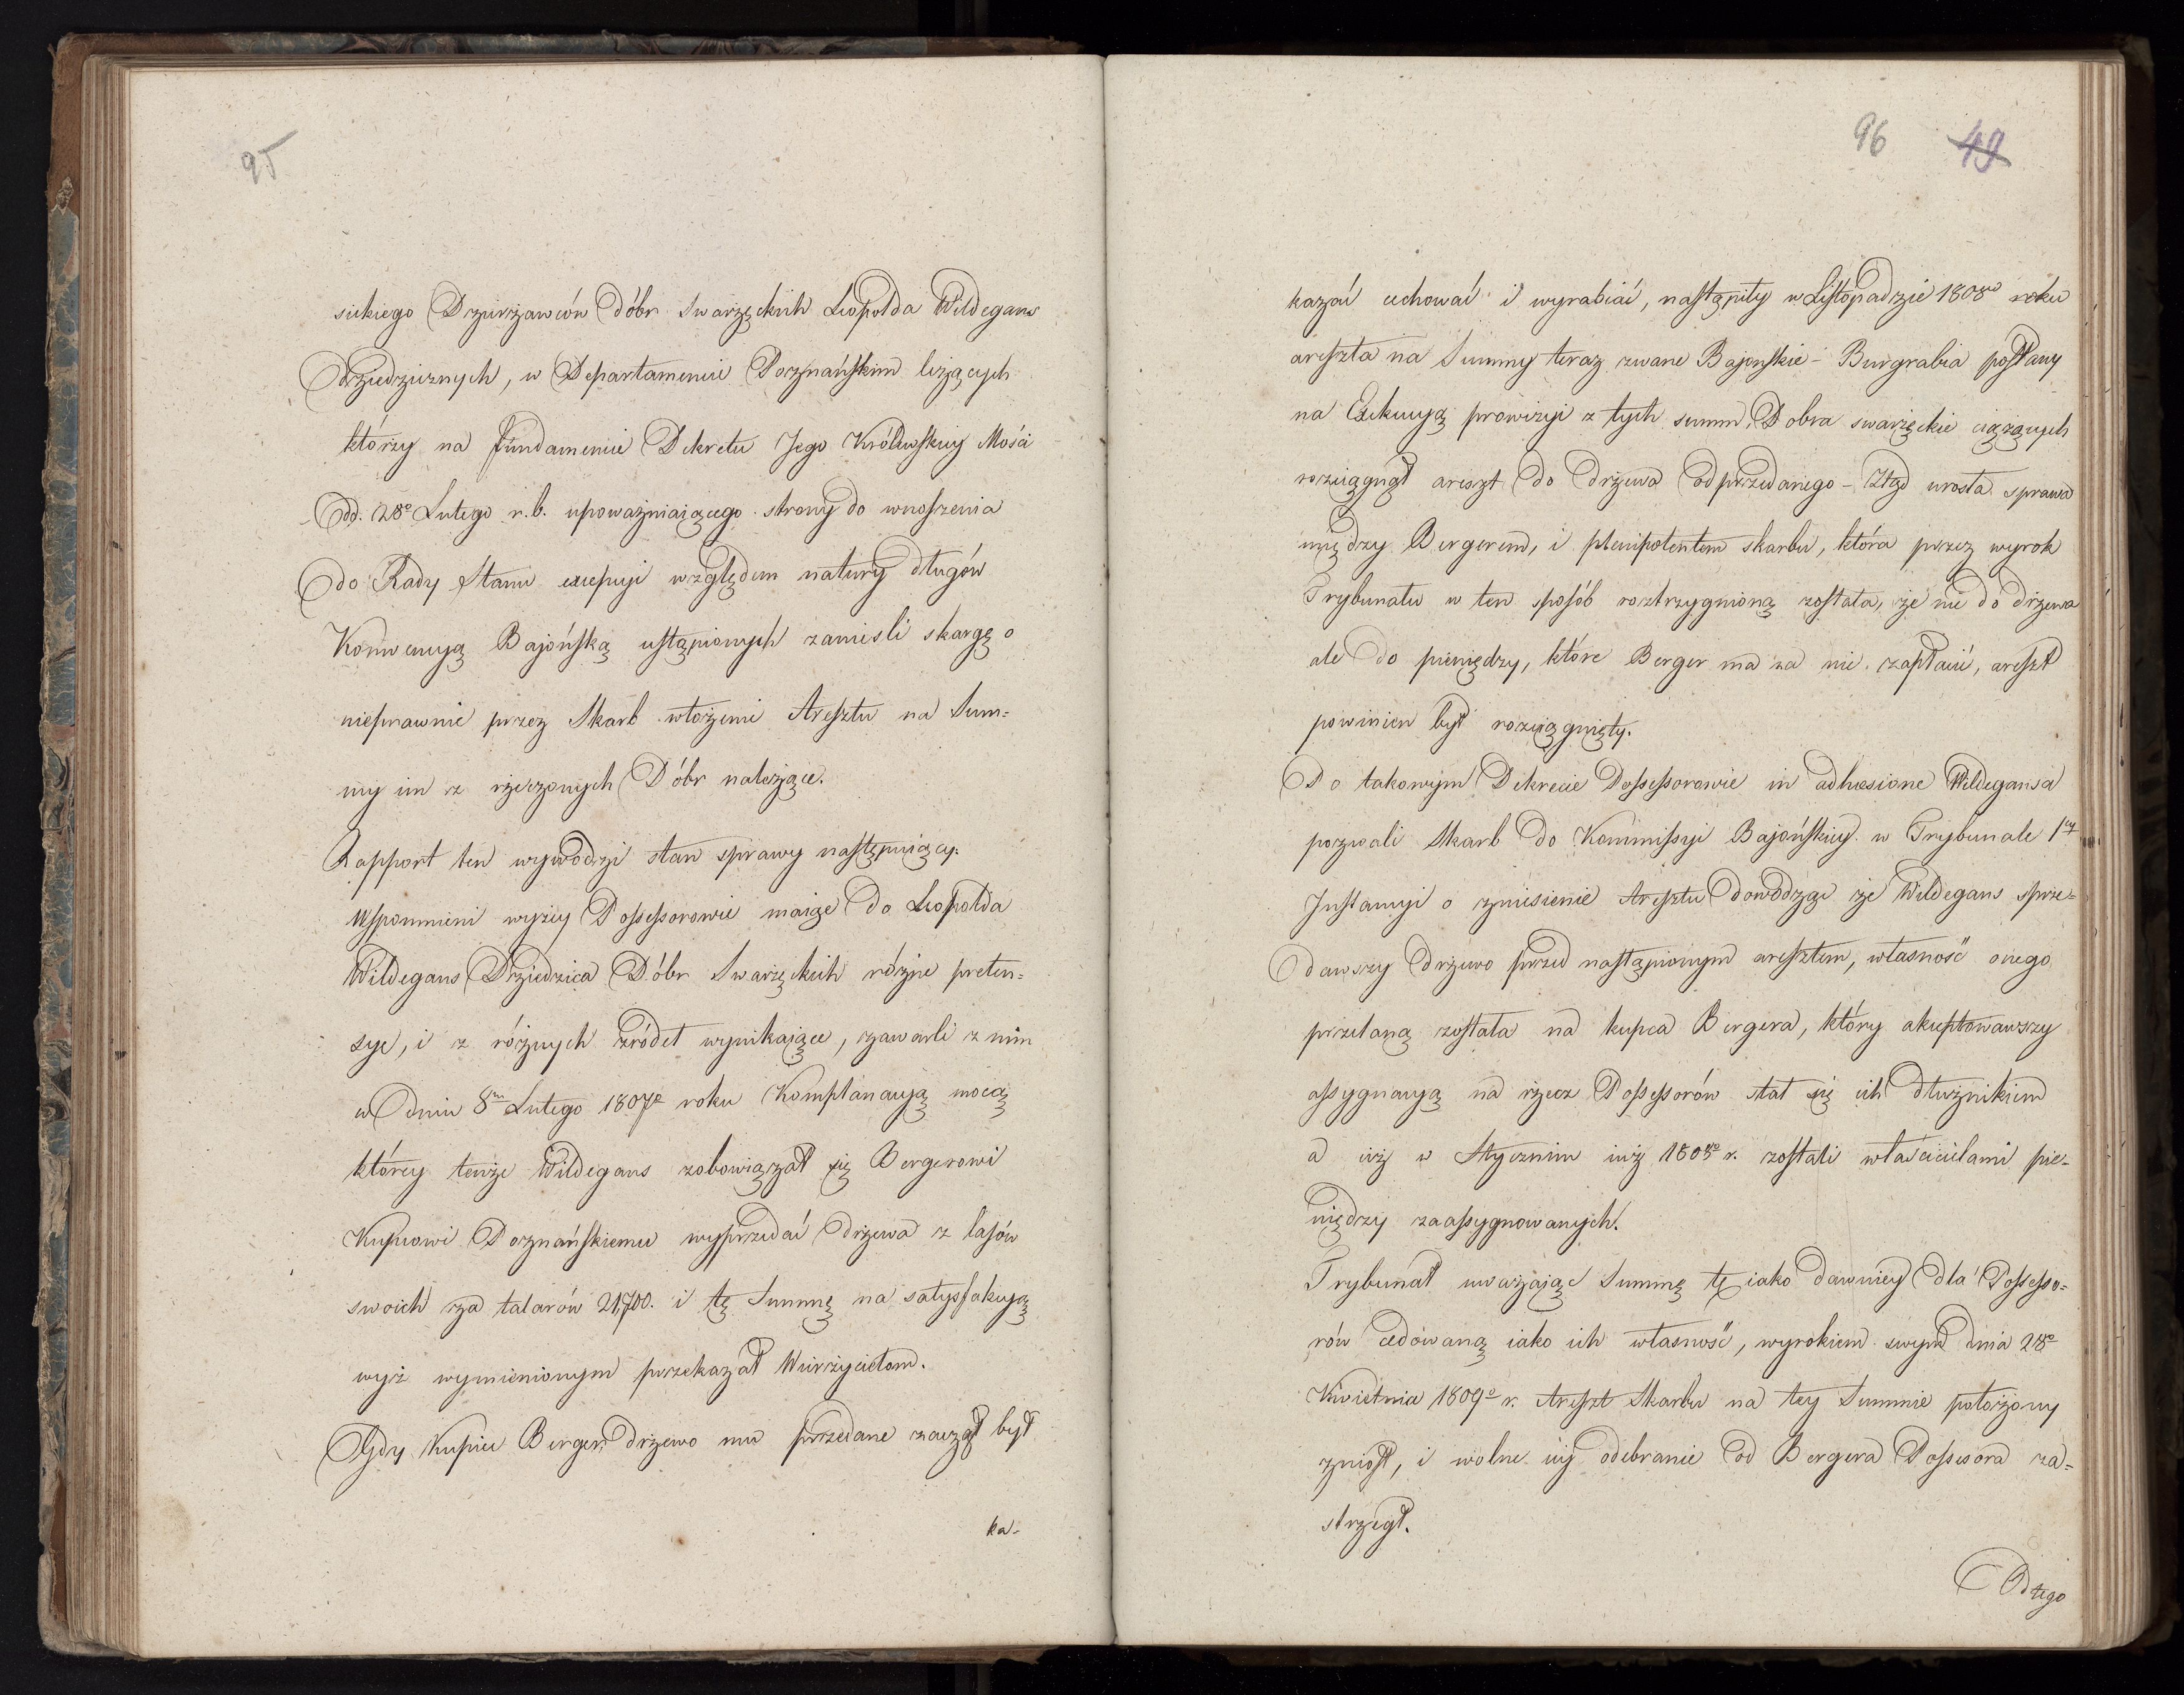 95
sickiego Dzierżawców dóbr Swarzęckich Leopolda Wildegans
Dziedzicznych, w Departamencie Poznańskim leżących
którzy na fundamencie Dekretu Jego Królewskiey Mości
dd. 28º Lutego r.b. upoważniaiącego strony do wnoszenia
do Rady Stanu excepcyi względem natury długów
Konwencyą Bajońską ustąpionych zanieśli skargę o
nieprawnie przez Skarb włożeni Aresztu na Sum=
my im z rzeczonych Dóbr należące.
Rapport ten wywodzi stan sprawy następuiący.
Wspomnieni wyżey Possessorowie maiąc do Leopolda
Wildegans Dziedzica Dóbr Swarzęckich różne preten=
sye, i z różnych źródeł wynikaiące, zawarli z nim
w dniu 8m Lutego 1807º roku Komplanacyą mocą
którey tenże Wildegans zobowiązał się Bergerowi
Kupcowi Poznańskiemu wyprzedać drzewa z lasów
swoich za talarów 21,700. i tę Summę na satysfakcyą
wyż wymienionym przekazał Wierzycielom.
Gdy Kupiec Berger drzewo mu przedane zaczął był
ka-
96 49
kazać cechować i wyrabiać, nastąpiły w Listopadzie 1808º roku
areszta na Summy teraz zwane Bajonskie - Burgrabia posłany
na Exekucyą prowizyi z tych summ, Dobra swarzęckie ciążących
rozciągnął areszt do drzewa odprzedanego - Ztąd urosła sprawa
między Bergerem, i plenipotentem skarbu, która przez wyrok
Trybunału w ten sposób rozstrzygnioną została, że nie do drzewa
ale do pieniędzy, które Berger ma za nie zapłacić, areszt
powinien być rozciągnięty.
Po takowym Dekrecie Possessorowie in adhaesione Wildegansa
pozwali Skarb do Kommissyi Bajońskiey w Trybunale 1ey
Instancyi o zniesienie Aresztu dowodząc że Wildegans sprze=
dawszy drzewo przed nastąpionym aresztem, własność onego
przelaną została na kupca Bergera, który akceptowawszy
assygnacyą na rzecz Possessorów stał się ich dłużnikiem
a ciż w Styczniu iuż 1808º r. zostali właścicielami pie-
niędzy zaassygnowanych.
Trybunał uważając Summę tę iako dawniey dla Possesso=
rów cedowaną iako ich własność, wyrokiem swym dnia 28º
Kwietnia 1809º r. Areszt Skarbu na tey Summie położony
zniósł, i wolne iey odebranie od Bergera Possesora za=
strzegł.
Od tego